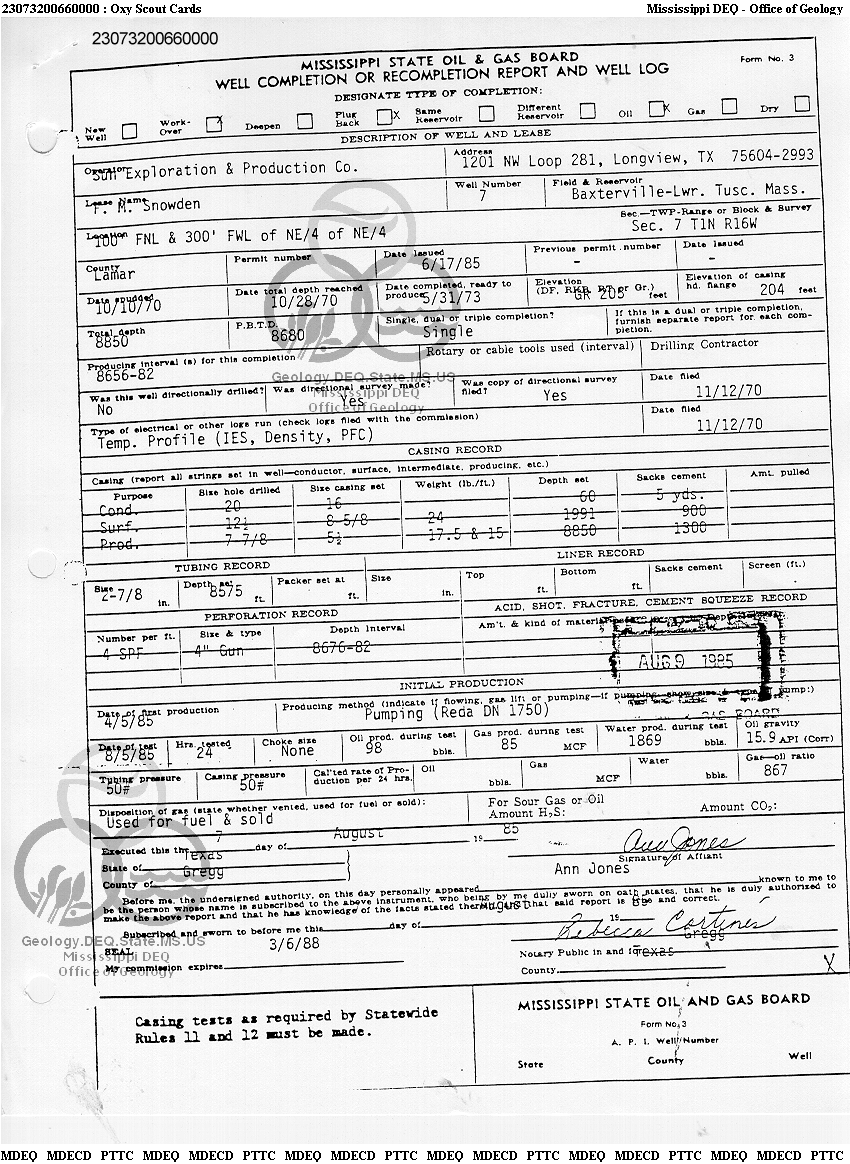 23073200660000 : Oxy Scout Cards Mississippi DEQ - Office of Geology
23073200660000
MISSISSIPPI STATE OIL & GAS BOARD Form No. 3
WELL COMPLETION OR RECOMPLETION REPORT AND WELL LOG
DESIGNATE TYPE OF COMPLETION:
New Well Work-Over X Deepen Plug Back X Same Reservoir Different Reservoir Oil X Gas Dry
DESCRIPTION OF WELL AND LEASE
Operator Sun Exploration & Production Co. Address 1201 NW Loop 281, Longview, TX 75604-2993
Lease Name F. M. Snowden Well Number 7 Field & Reservoir Baxterville-Lwr. Tusc. Mass.
Location 100' FNL & 300' FWL of NE/4 of NE/4 Sec.—TWP-Range or Block & Survey Sec. 7 T1N R16W
County Lamar Permit number Date Issued 6/17/85 Previous permit number - Date Issued -
Date spudded 10/10/70 Date total depth reached 10/28/70 Date completed, ready to produce 5/31/73 Elevation (DF, RKB, RT or Gr.) GR 205 feet Elevation of casing hd. flange 204 feet
Total depth 8850 P.B.T.D. 8680 Single, dual or triple completion? Single If this is a dual or triple completion, furnish separate report for each completion.
Producing interval (s) for this completion 8656-82 Rotary or cable tools used (interval) Drilling Contractor
Geology.DEQ.State.MS.US
Mississippi DEQ
Office of Geology
Was this well directionally drilled? No Was directional survey made? Yes Was copy of directional survey filed? Yes Date filed 11/12/70
Type of electrical or other logs run (check logs filed with the commission) Temp. Profile (IES, Density, PFC) Date filed 11/12/70
CASING RECORD
Casing (report all strings set in well—conductor, surface, intermediate, producing, etc.)
Purpose Size hole drilled Size casing set Weight (lb./ft.) Depth set Sacks cement Amt. pulled
Cond. 20 16 60 5 yds.
Surf. 12½ 8-5/8 24 1991 900
Prod. 7-7/8 5½ 17.5 & 15 8850 1300
TUBING RECORD LINER RECORD
Size 2-7/8 in. Depth set 8575 ft. Packer set at ft. Size in. Top ft. Bottom ft. Sacks cement Screen (ft.)
PERFORATION RECORD ACID, SHOT, FRACTURE, CEMENT SQUEEZE RECORD
Number per ft. Size & type Depth Interval Am't. & kind of material
4 SPF 4" Gun 8676-82
AUG 9 1985
INITIAL PRODUCTION
Date of first production 4/5/85 Producing method (indicate if flowing, gas lift or pumping—if pumping, show size & type of pump:) Pumping (Reda DN 1750)
GAS BOARD
Date of test 8/5/85 Hrs. tested 24 Choke size None Oil prod. during test 98 bbls. Gas prod. during test 85 MCF Water prod. during test 1869 bbls. Oil gravity 15.9 API (Corr)
Tubing pressure 50# Casing pressure 50# Cal'ted rate of Production per 24 hrs. Oil bbls. Gas MCF Water bbls. Gas—oil ratio 867
Disposition of gas (state whether vented, used for fuel or sold): Used for fuel & sold For Sour Gas or Oil Amount H₂S: Amount CO₂:
Executed this the 7 day of August 19 85 Ann Jones
State of Texas Signature of Affiant
County of Gregg Ann Jones
Before me, the undersigned authority, on this day personally appeared known to me to
be the person whose name is subscribed to the above instrument, who being by me dully sworn on oath states, that he is duly authorized to
make the above report and that he has knowledge of the facts stated therein, and that said report is true and correct.
Subscribed and sworn to before me this day of August 19 Rebecca Cortines
Geology.DEQ.State.MS.US
Mississippi DEQ
Office of Geology
SEAL 3/6/88 Notary Public in and for Texas Gregg
My commission expires County X
Casing tests as required by Statewide
Rules 11 and 12 must be made.
MISSISSIPPI STATE OIL AND GAS BOARD
Form No. 3
A. P. I. Well Number
State County Well
MDEQ MDECD PTTC MDEQ MDECD PTTC MDEQ MDECD PTTC MDEQ MDECD PTTC MDEQ MDECD PTTC MDEQ MDECD PTTC